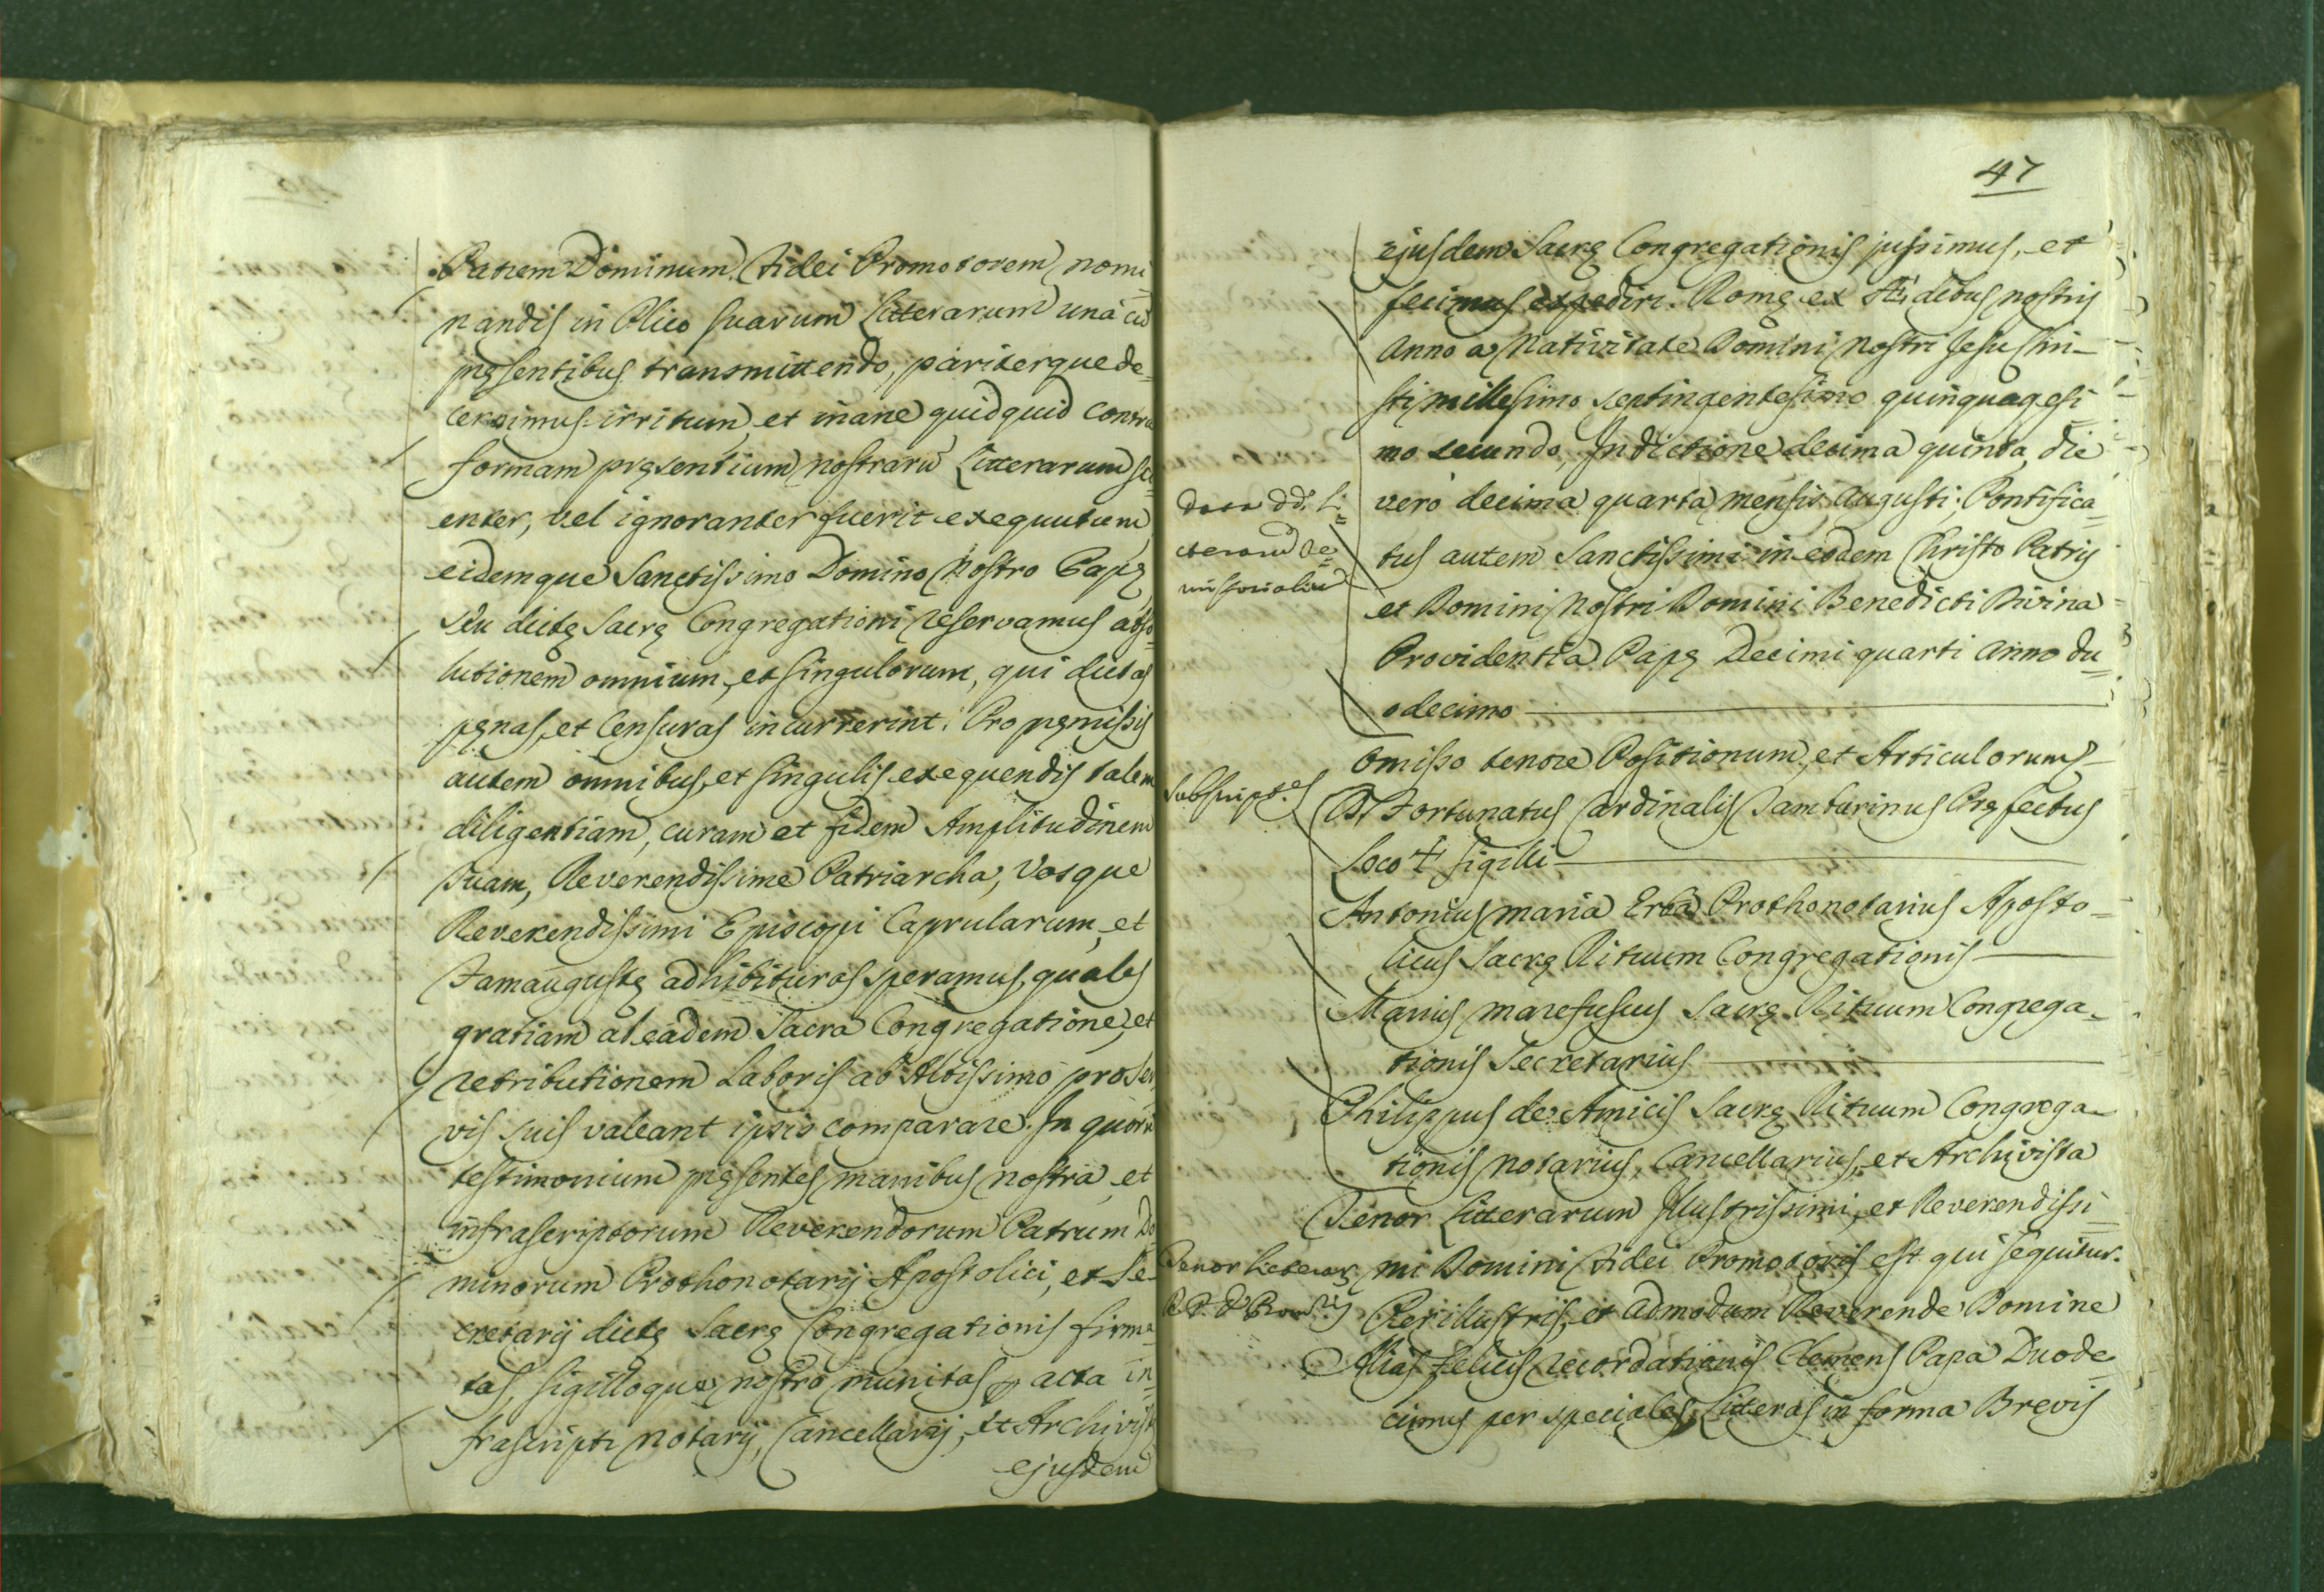 Patrem Dominum Fidei Promotorem nomi
nandis in Plico suarum Litterarum unà cū
pręsentibus transmittendo, pariterque de=
cernimus irritum, et inane quidquid contra
formam pręsentium nostrarū Litterarum sci=
enter, vel ignoranter fuerit exequutum,
eidemque Sanctissimo Domino Nostro Papę
seu dictę Sacrę Congregationi reservamus abso=
lutionem omnium, et singulorum, qui dictas
pęnas, et Censuras incurrerint. Pro pręmissis
autem omnibus, et singulis exequendis talem
diligentiam, curam et fidem Amplitudinem
suam, Reverendissime Patriarcha, Vosque
Reverendissimi Episcopi Caprularum, et
Famaugustę adhibituros speramus, quales
gratiam ab eadem Sacra Congregatione, et
retributionem Laboris ab Altissimo pro Ser
vis suis valeant ipsis comparare. In quorū
testimonium pręsentes manibus nostra, et
infrascriptorum Reverendorum Patrum Do=
minorum Prothonotarij Apostolici, et Se=
cretarij dictę Sacrę Congregationis firma=
tas, sigilloque nostro munitas acta in=
frascripti Notarij, Cancellarij, et Archivistę
ejusdem
47
ejusdem Sacrę Congregationis jussimus, et
fecimus expediri. Romę ex Ædibus nostris
Anno a Nativitate Domini Nostri Jesu Chri=
sti millesimo septingentesimo quinquagesi
mo secundo, Indictione decima quinta, die
verò decima quarta mensis Augusti; Pontifica=
tus autem Sanctissimi in eodem Christo Patris
et Domini Nostri Domini Benedicti Divina
Providentia Papę Decimi quarti Anno du=
odecimo
Data dd. Li=
cterarū Re=
missorialiū
Omisso tenore Positionum, et Articulorum
Subscript.es
Fortunatus Cardinalis Tamburinus Pręfectus
Loco + sigilli
Antonius Maria Erba Prothonotarius Aposto=
licus Sacrę Rituum Congregationis
Marius Marefuscus Sacrę Rituum Congrega=
tionis Secretarius
Philippus de Amicis Sacrę Rituum Congrega=
tionis Notarius, Cancellarius, et Archivista
Tenor Litterarum Illustrissimi, et Reverendissi=
mi Domini Fidei Promotoris est qui sequitur.
Tenor Litterar.
Perillustris, et Admodum Reverende Domine
Alias felicis recordationis Clemens Papa Duode=
cimus per speciales Litteras in forma Brevis